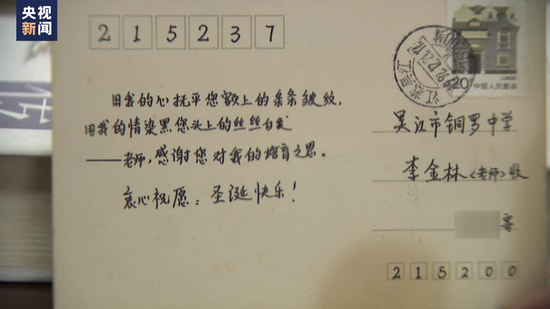 央视
新闻
215237
用我的心抚平您额上的条条皱纹,
用我的情染黑您头上的丝丝白发
——老师,感谢您对我的培育之恩。
衷心祝愿:圣诞快乐!
20
中国人民邮政
吴江市铜罗中学
李金林(老师)收
寄
215200